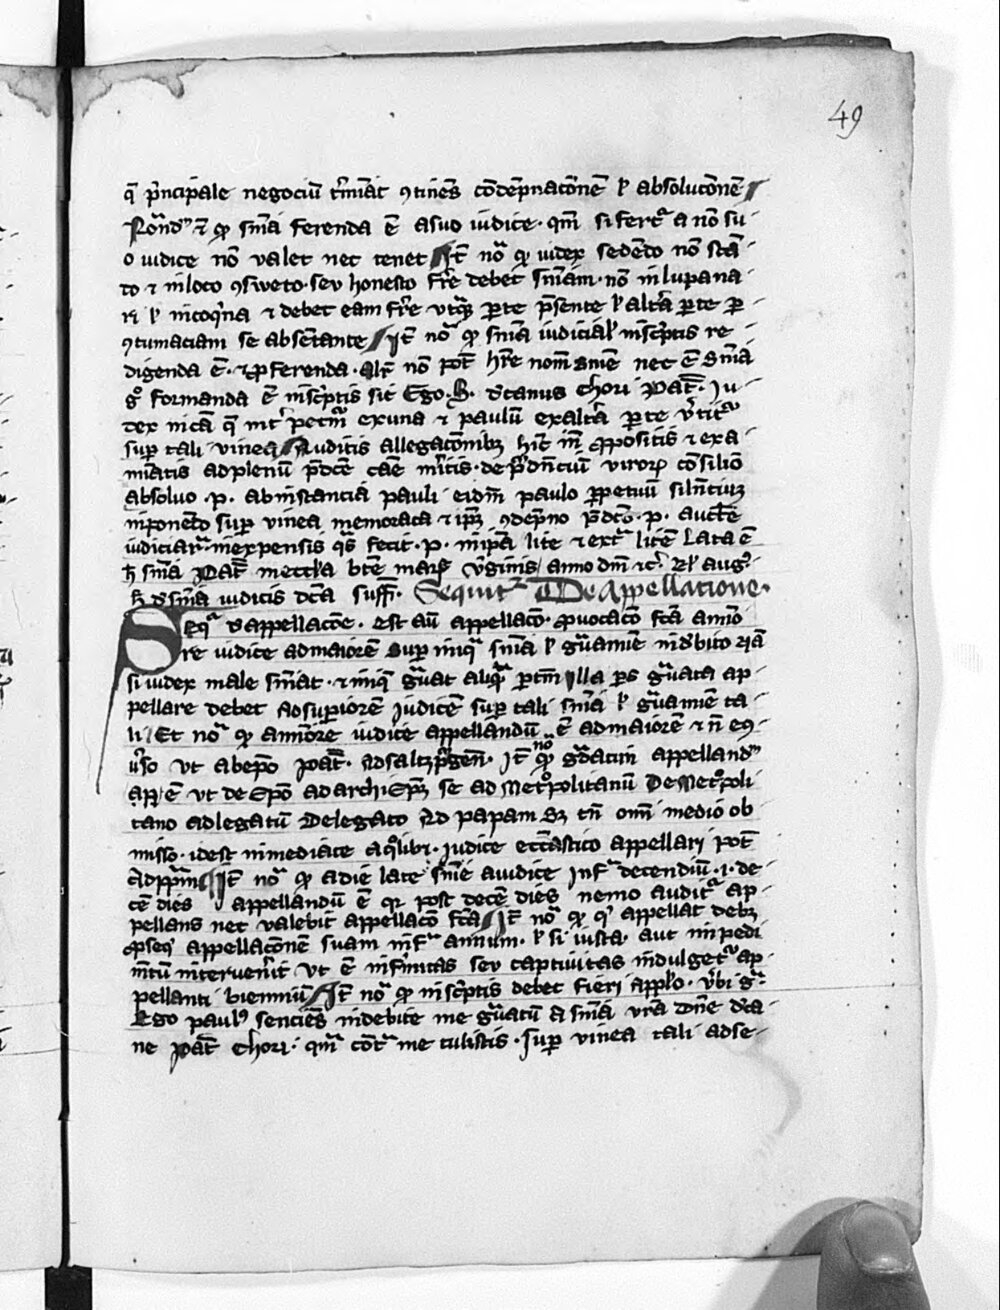 49
q̄ p̄ncipale negociū t̄minat ↄtinēs cōdēpnacōnē l̓ absolucōnē
Nōnd̓ ē qp̄ sn̄ia ferenda ē a suo iudice · qm̄ si fert᷑ a nō su
o iudice nō valet nec tenet It̄ no᷑ qp̄ iudex sedēdo nō stā
do ⁊ in loco ↄsweto · seu honesto fr̄re debet sn̄iam · nō in lupana
ri l̓ in coq̓na ⁊ debet eam fr̄re utq̄ꝫ ꝑte p̄sente l̓ alt̄a ꝑte ꝑ
ↄtumaciam se absētante It̄ no᷑ qp̄ sn̄ia iudicial̓ in sc̄ptis re
digenda ē · ⁊ ꝓferenda · Alr̄ nō pot̄ hr̄e nom̄ snīe nec ē sn̄ia
g̊ formanda ē in sc̄ptis sic Ego · B · d̓canus Chori Pat̄ · Iu
dex in cā q̄ int̓ petm̄ ex una ⁊ paulū ex alt̄a ꝑte v̓tit᷑
suꝑ tali vinea Auditis allegacōnibꝫ hīc īn ꝓpositis ⁊ exa
miatis ad plenū p̄dc̄e cāe m̓itis · de p̄dn̄ciū viroꝝ cōsilio
absoluo · p · ab instancia pauli eidm̄ paulo ꝑpetuū siln̄ciū
inponēdo suꝑ vinea memorata ⁊ ip̄ꝫ ↄdēpno p̄dc̄o · p · auct̄e
iudiciar᷑ in expensis q̄s fecit · p · in ip̄a lite ⁊ ext᷑ litē Lata ē
h̄ sn̄ia Pat̄ in eccl̓a bt̄e mar̄ v̓ginis anno dn̄i ⁊c̓ · kl̓ aug᷑
h̄ d̓ sn̄ia iudicis dc̄a suff̄ · Sequit᷑ De Appellacione ·
Seq᷑ d̓ appellacōe · est aū appellacō · ꝓuocacō fc̄a a mīo
re iudice ad maiorē suꝑ iniq᷑ sn̄ia l̓ g᷑uamīe ind̓bito
si iudex male sn̄iat · ⁊ iniq̄ g᷑uat aliq᷑ ꝑtm̄ illa ꝑs g᷑uata ap
pellare debet ad superiorē iudicē suꝑ tali sn̄ia l̓ g᷑uamīe ta
li Et no᷑ qp̄ a mīore iudice appellandū ē ad maiorē ⁊ n̄ eↄ
v̓so ut ab epō pat̄ · ad saltzp̄gen̄ · It̄ no᷑ qp̄ g᷑datim appelland̓
ē ut de Epō ad archiEp̄ꝫ se ad Met᷑politanū De Met᷑poli
tano ad legatū De legato ad papam Sꝫ tn̄ om̄i medio ob
misso · idest inmediate a q̊libꝫ · iudice ecc̄astico appellari pot̄
ad p̄pam It̄ no᷑ qp̄ a die late sn̄ie a iudice inf᷑ decendiū · i · de
cē dies appellandū ē qꝛ post decē dies nemo audit᷑ ap
pellans nec valebit appellacō fc̄a It̄ no᷑ qp̄ q̓ appellat debꝫ
ꝓseq̓ appellacōnē suam inf᷑ annum · l̓ si iusta · aut inpedi
m̄tū intervenīt ut ē infirmitas seu captiuitas indulget᷑ ap
pellanti bienniū It̄ no᷑ qp̄ in sc̄ptis debet fieri applō · v̓bi g᷑
Ego paulꝰ senciēs indebite me g᷑uatū a sn̄ia vr̄a dn̄e d̓ca
ne Pat̄ Chori · qm̄ cōt᷑ me tulistis · suꝑ vinea tali ad se